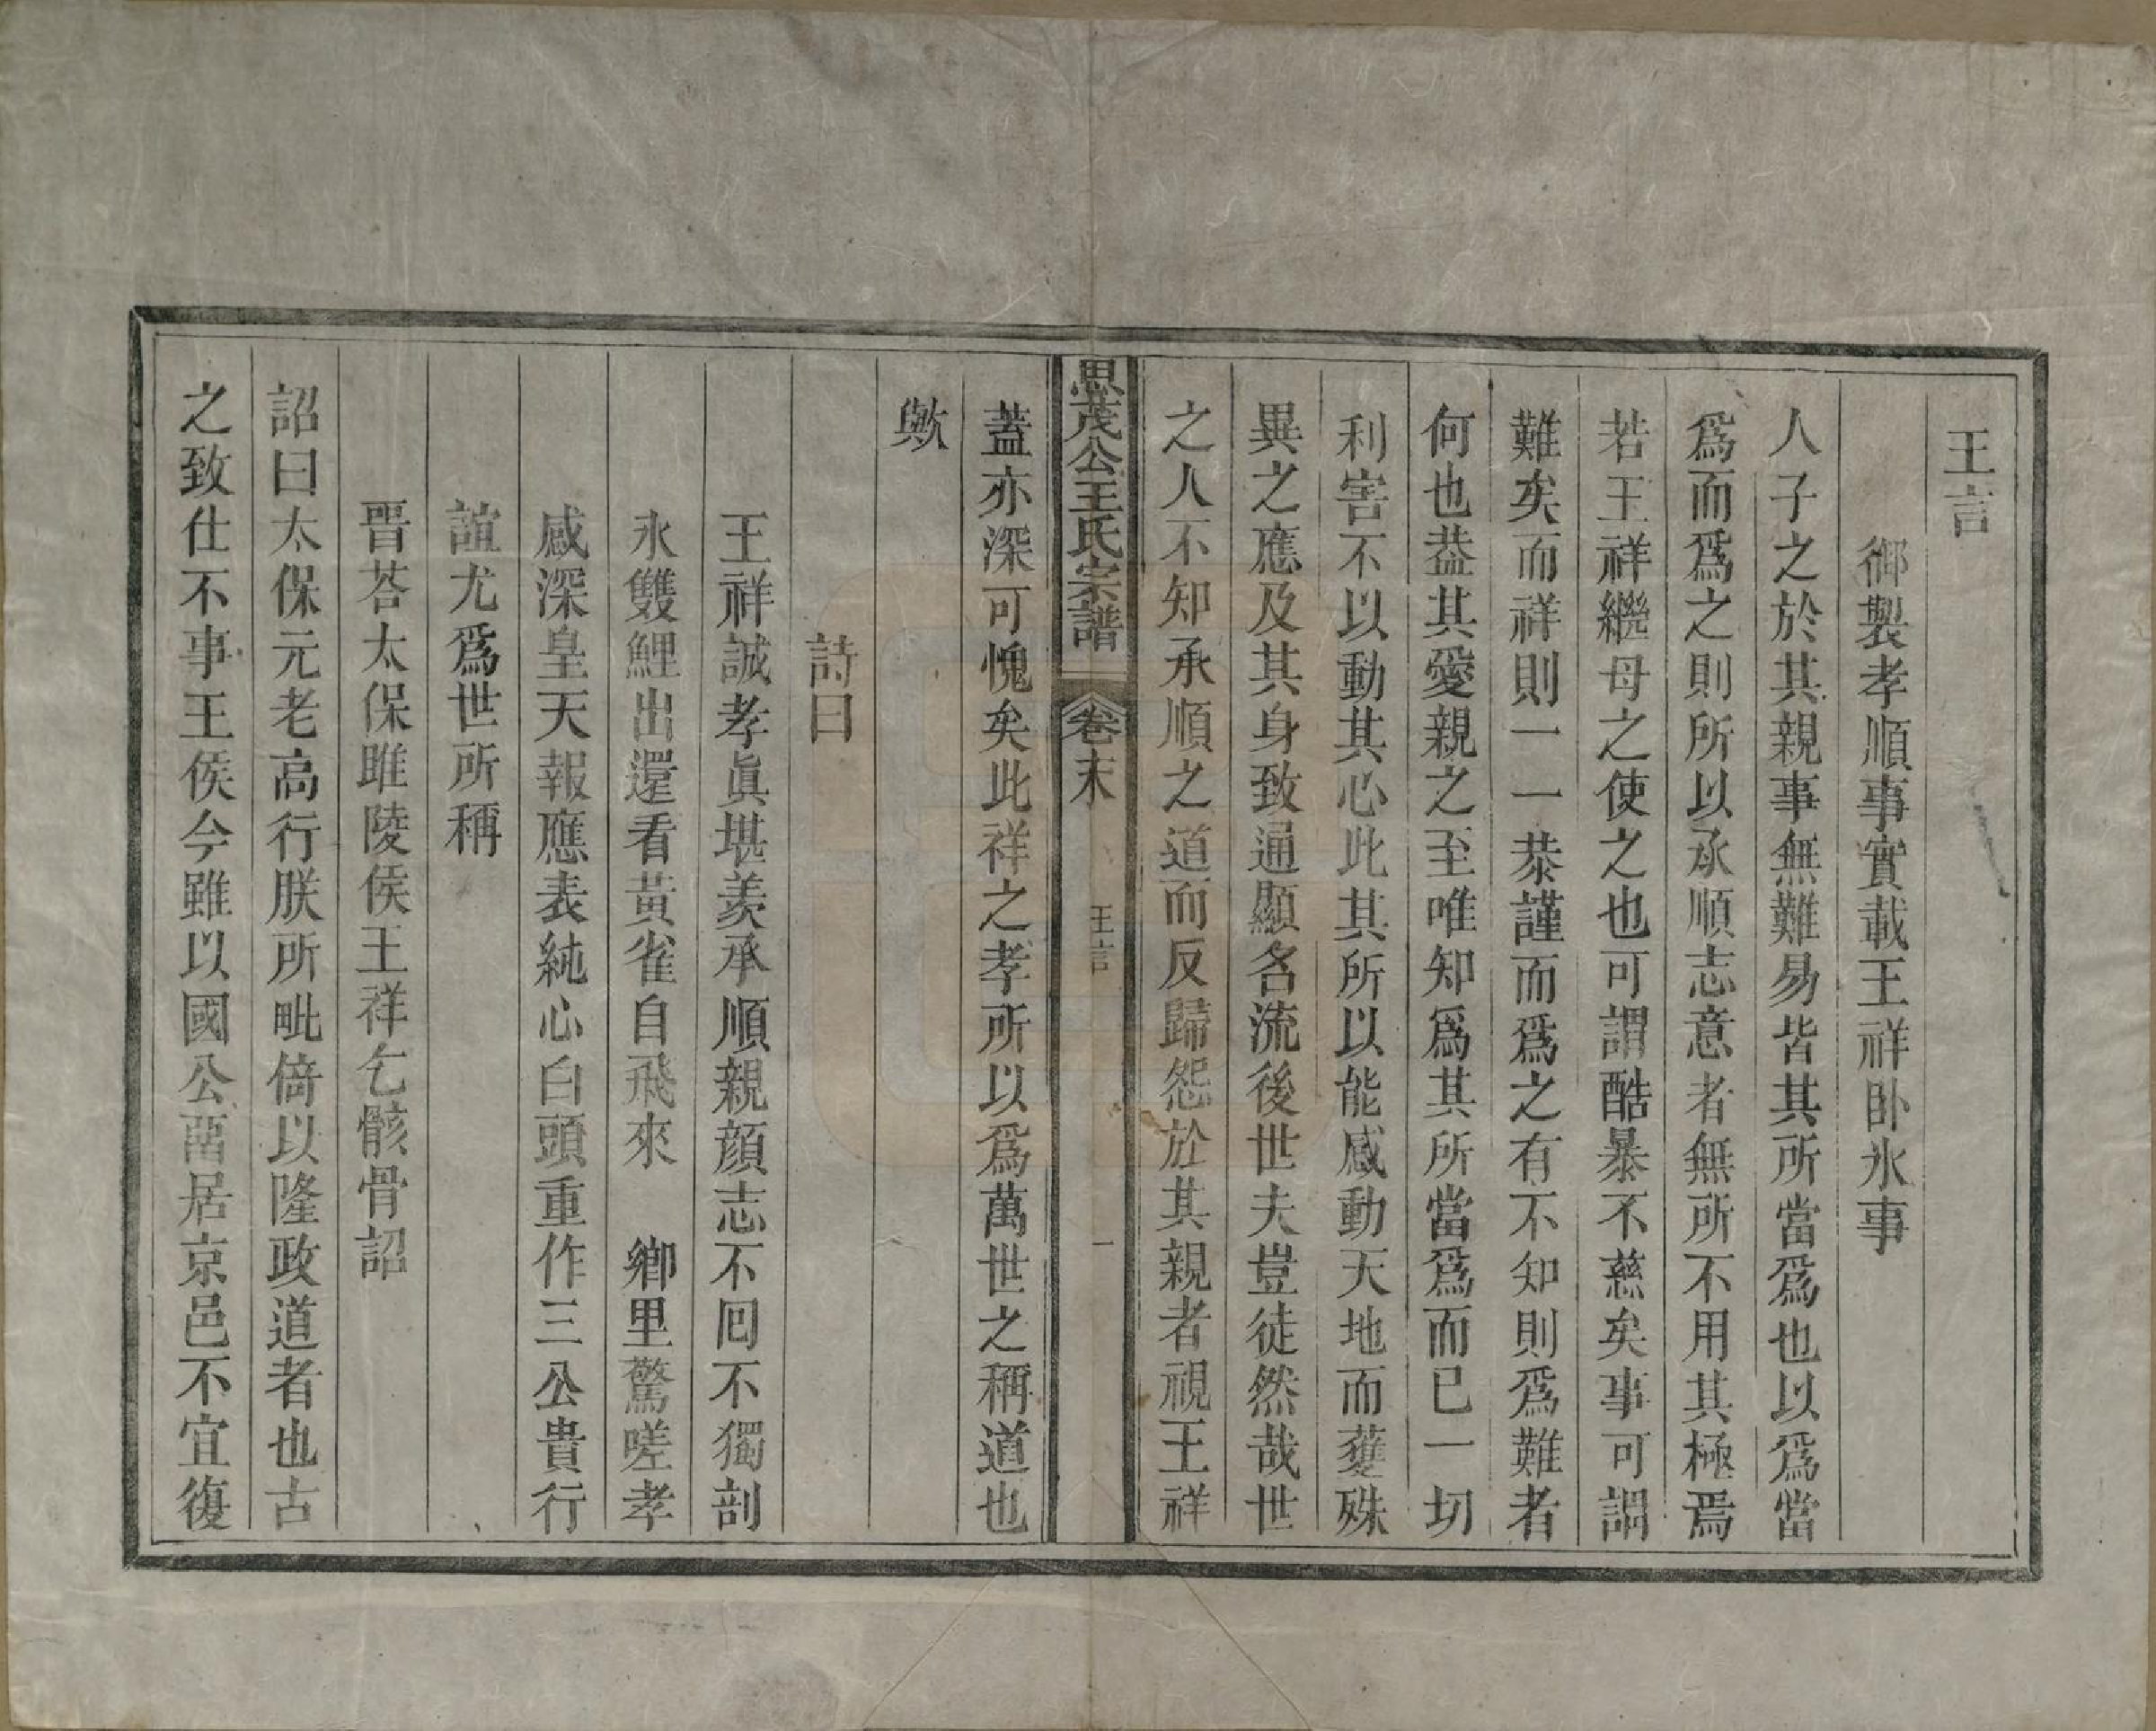 王言
御製孝順事實載王祥卧氷事
人子之於其親事無難易皆其所當爲也以爲當
爲而爲之則所以承順志意者無所不用其極焉
若王祥繼母之使之也可謂酷暴不慈矣事可謂
難矣而祥則一一恭謹而爲之有不知則爲難者
何也葢其愛親之至唯知爲其所當爲而已一切
利害不以動其心此其所以能感動天地而獲殊
異之應及其身致通顯名流後世夫豈徒然哉世
之人不知承順之道而反歸怨於其親者視王祥
思茂公王氏宗譜 卷末 王言 一
蓋亦深可愧矣此祥之孝所以爲萬世之稱道也
歟
詩曰
王祥誠孝眞堪羨承順親顔志不回不獨剖
氷雙鯉出還看黃雀自飛來 鄉里驚嗟孝
感深皇天報應表純心白頭重作三公貴行
誼尤爲世所稱
晋荅太保睢陵侯王祥乞骸骨詔
詔曰太保元老高行朕所毗倚以隆政道者也古
之致仕不事王侯今雖以國公畱居京邑不宜復